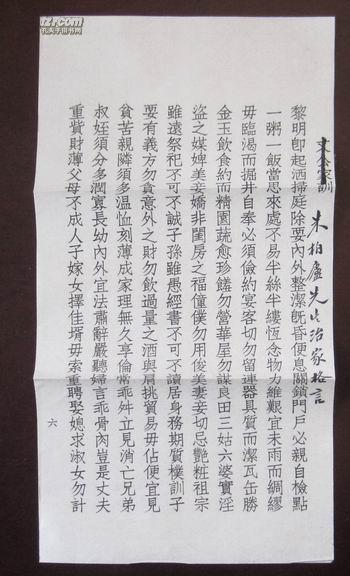 文公家訓
朱柏廬先生治家格言
黎明卽起洒掃庭除要內外整潔旣昏便息關鎖門戶必親自檢點
一粥一飯當思來處不易半絲半縷恆念物力維艱宜未雨而綢繆
毋臨渴而掘井自奉必須儉約宴客切勿留連器具質而潔瓦缶勝
金玉飲食約而精園蔬愈珍饈勿營華屋勿謀良田三姑六婆實淫
盜之媒婢美妾嬌非閨房之福僮僕勿用俊美妻妾切忌艷粧祖宗
雖遠祭祀不可不誠子孫雖愚經書不可不讀居身務期質樸訓子
要有義方勿貪意外之財勿飲過量之酒與肩挑貿易毋佔便宜見
貧苦親隣須多溫恤刻薄成家理無久享倫常乖舛立見消亡兄弟
叔姪須分多潤寡長幼內外宜法肅辭嚴聽婦言乖骨肉豈是丈夫
重貲財薄父母不成人子嫁女擇佳壻毋索重聘娶媳求淑女勿計
六